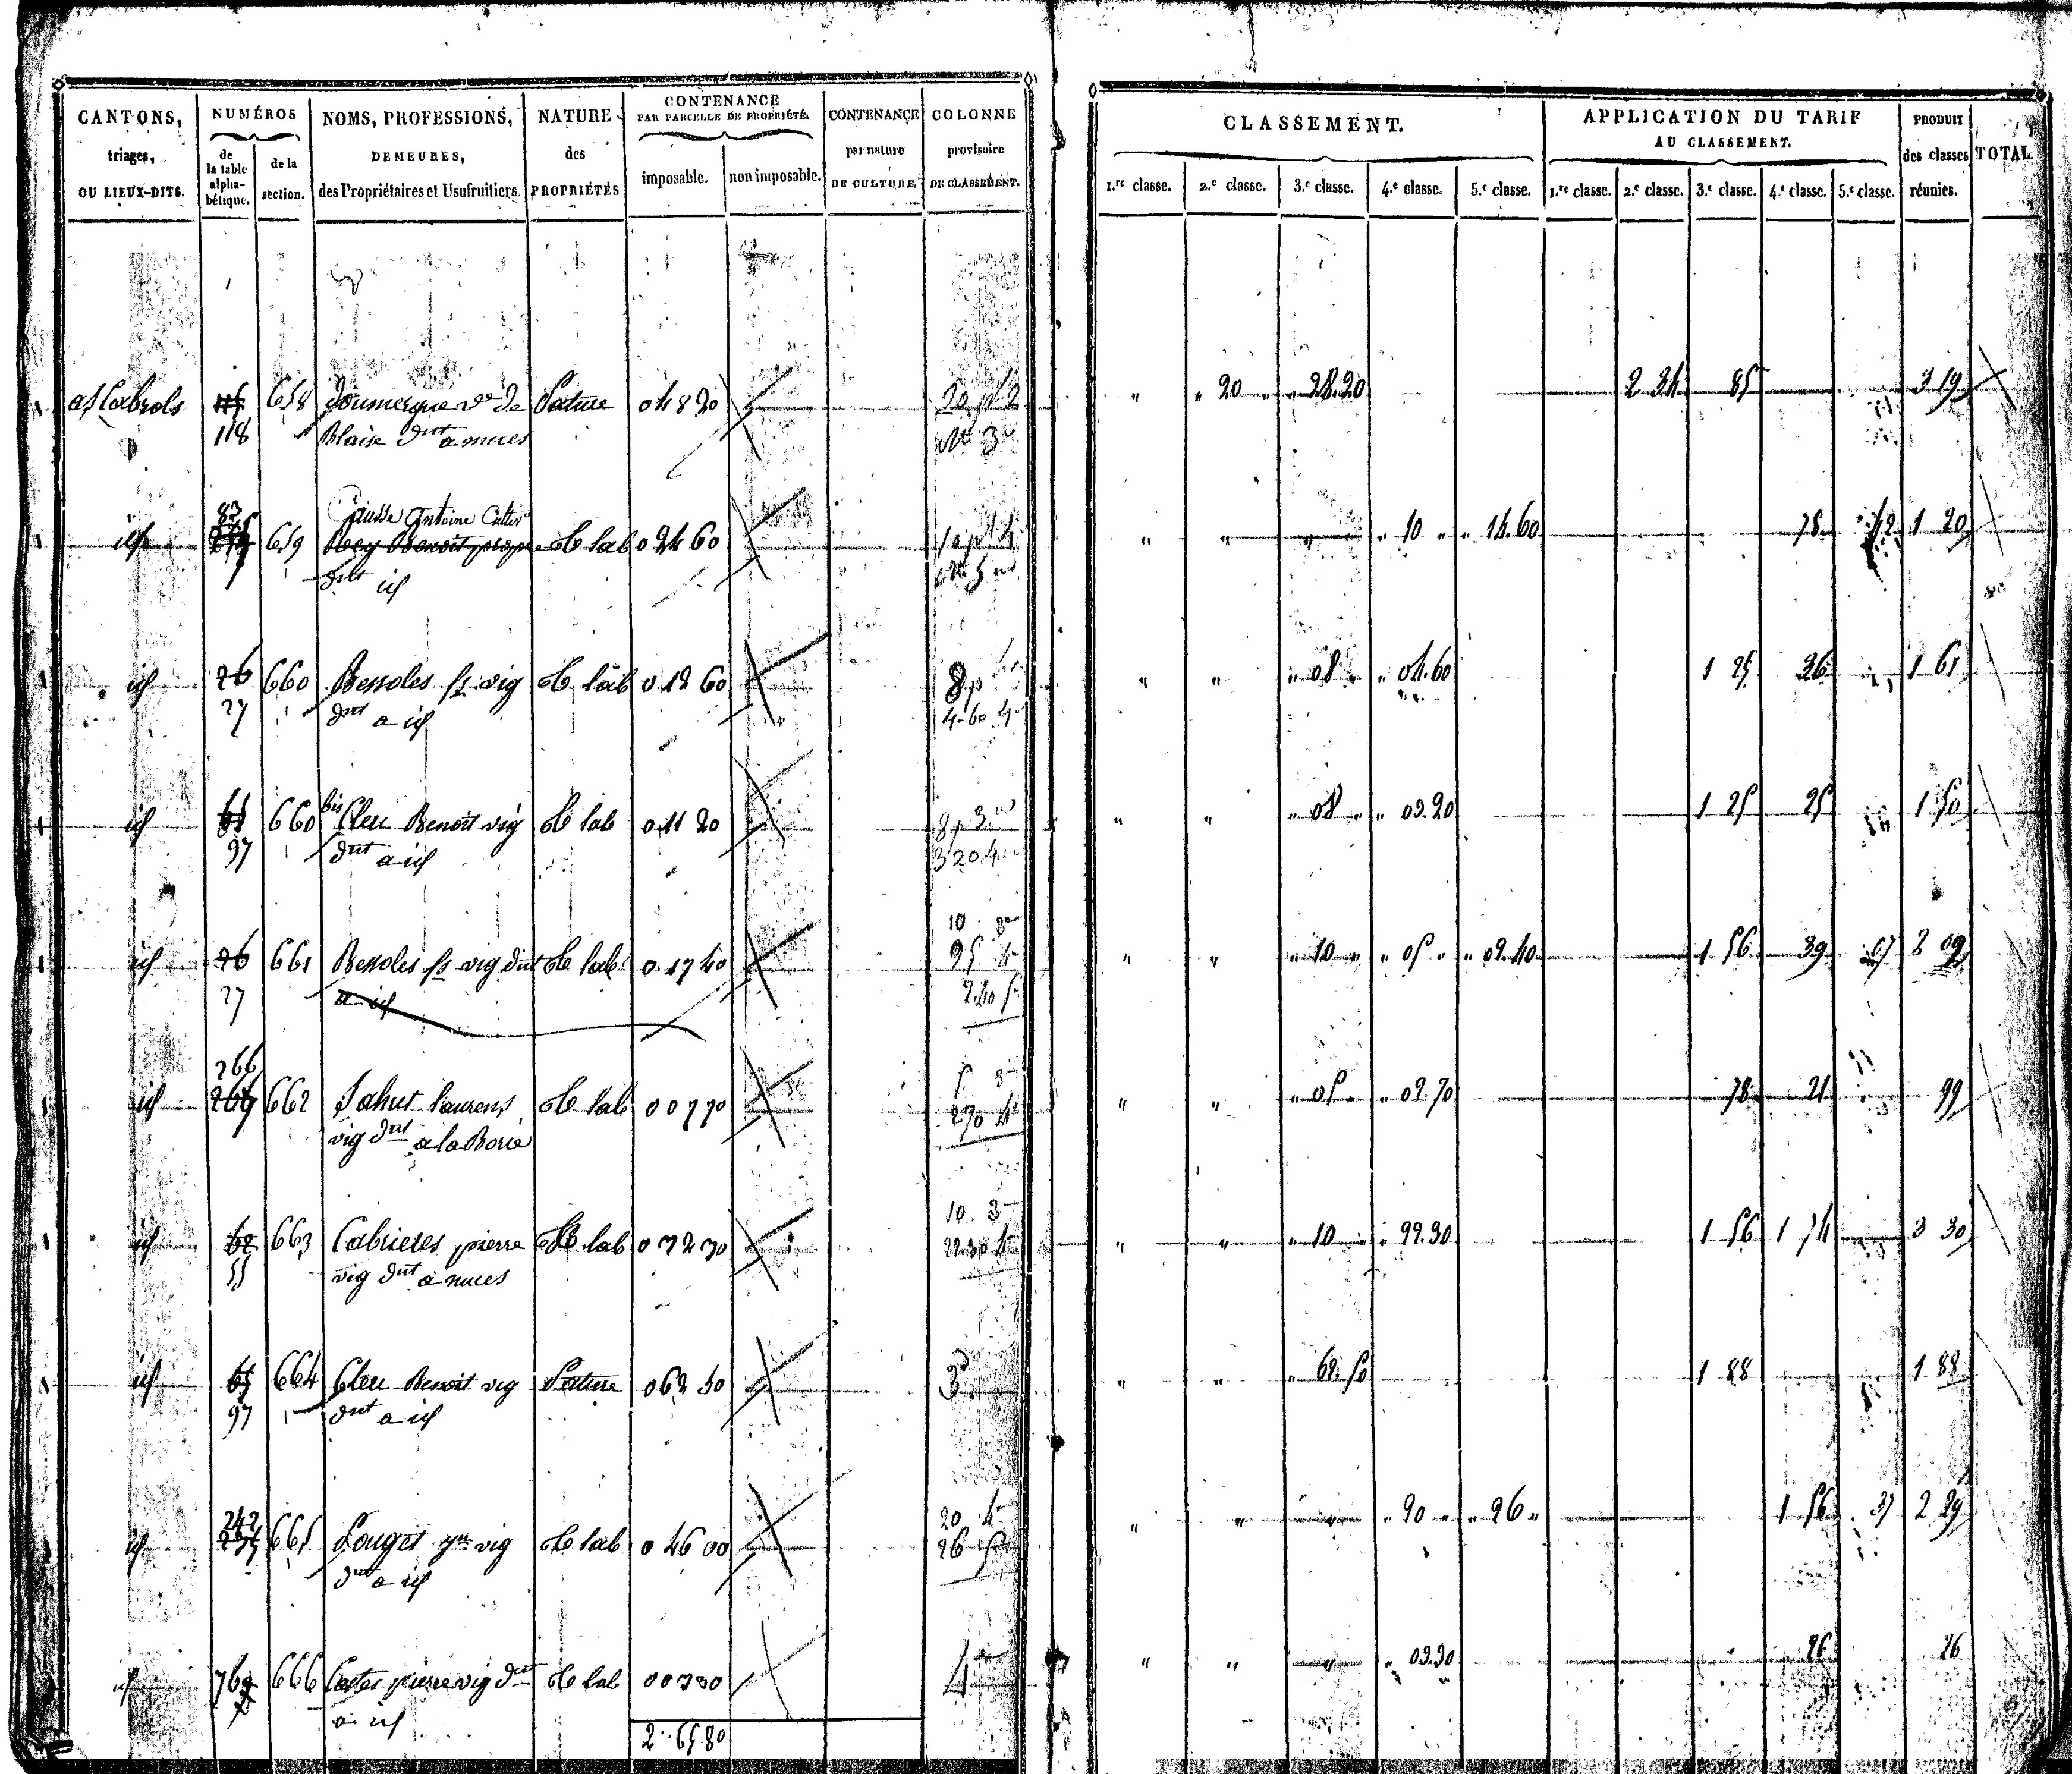 CANTONS, triages, OU LIEUX-DITS. | NUMÉROS de la table alpha-bétique. | de la section. | NOMS, PROFESSIONS, DEMEURES, des Propriétaires et Usufruitiers. | NATURE des PROPRIÉTÉS | CONTENANCE PAR PARCELLE DE PROPRIÉTÉ. imposable. | non imposable. | CONTENANCE par nature DE CULTURE. | COLONNE provisoire DE CLASSEMENT. | CLASSEMENT. 1.re classe. | 2.e classe. | 3.e classe. | 4.e classe. | 5.e classe. | APPLICATION DU TARIF AU CLASSEMENT. 1.re classe. | 2.e classe. | 3.e classe. | 4.e classe. | 5.e classe. | PRODUIT des classes réunies. | TOTAL
658 Doumergue ve de Pature 0 48 20 " " 20 " " 28.20 2 34 85 3 19
118 Blaise dnt a nuces
83 Causse Antoine Cultiv
id 659 Rey Benoit prop Th lab 0 24 60 " " " " 10 " " 14.60 78 42 1 20
dnt id
id 26 660 Bessoles fs vig Th lab 0 12 60 8 p " " " 08 " " 04.60 1 25 36 1 61
27 dnt a id 4-60 4
id 660 bis Cleu Benoit vig Th lab 0 11 20 8 p 3 " " " 08 " " 03.20 1 25 25 1 50
97 dnt a id 3 20 4
10 3
id 26 661 Bessoles fs vig dnt Th lab 0 17 40 " " " 10 " " 05 " " 02.40 1 56 39 07 2 02
27 a id 2.40 5
266
id 662 Sahut laurens Th lab 0 07 70 2 70 4 " " " 05 " " 02.70 78 21 99
vig dnt a la Borie
10 3
id 62 663 Cabrieres pierre Th lab 0 32 30 22.30 4 " " " 10 " " 22.30 1 56 1 74 3 30
55 vig dnt a nuces
id 664 Cleu Benoit vig Pature 0 62 50 3 " " " 62.50 1 88 1 88
97 dnt a id
242 20 4
id 665 Pouget vig Th lab 0 46 00 26 5 " " " " 20 " " 26 " 1 56 37 2 29
dnt a id
id 666 pierre vig dnt Th lab 0 03 30 4 " " " " 03.30 26 26
a id
2 65 80